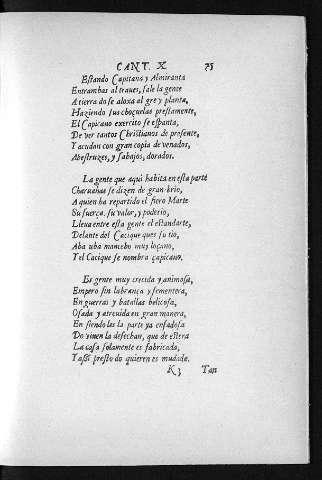 CANT. X. 75
Estando Capitana y Almiranta
Entrambas al traues, sale la gente
A tierra do se aloxa al gre y planta,
Haziendo sus choçuelas prestamente,
El Capicano exercito se espanta,
De ver tantos Christianos de presente,
Y acudan con gran copia de venados,
Abestruzes, y sabajos, dorados.
La gente que aqui habita en esta parte
Charuahas se dizen de gran brio,
A quien ha repartido el fiero Marte
Su fuerça, su valor, y poderio,
Lleua entre esta gente el estandarte,
Delante del Cacique ques su tio,
Aba uba mancebo muy loçano,
Y el Cacique se nombra çapicano.
Es gente muy crecida y animosa,
Empero sin labrança y sementera,
En guerras y batallas belicosa,
Osada y atreuida en gran manera,
En siendo les la parte ya enfadosa
Do viuen la desechan, que de estera
La casa solamente es fabricada,
Y assi presto do quieren es mudada.
K 3 Tan